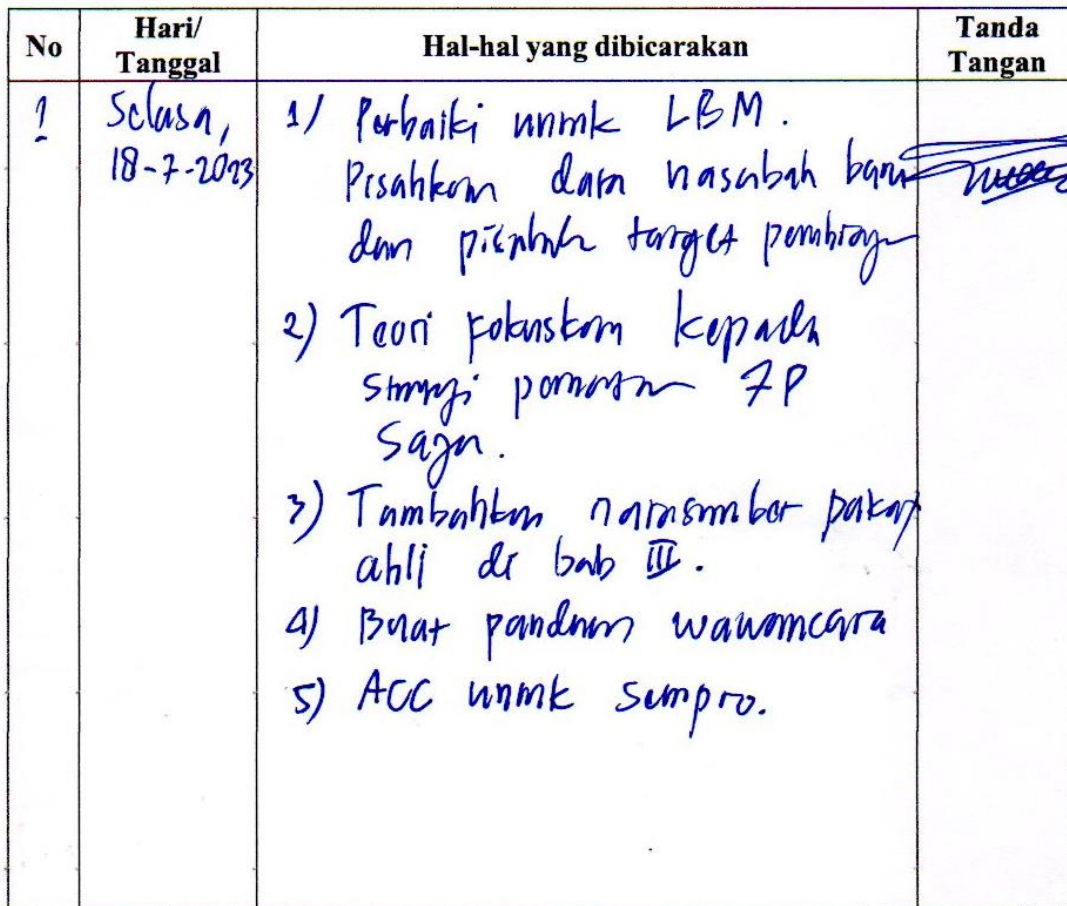 No
Hari/
Tanggal
Hal-hal yang dibicarakan
Tanda
Tangan
1
Selasa,
18-7-2023
1) Perbaiki untuk LBM.
Pisahkan data nasabah baru
dan target pembiay
2) Teori Fokuskan kepada
strategi pemasaran 7P
Saja.
3) Tambahkan narasumber pakar
ahli di bab III.
4) Buat panduan wawancara
5) ACC untuk Sempro.